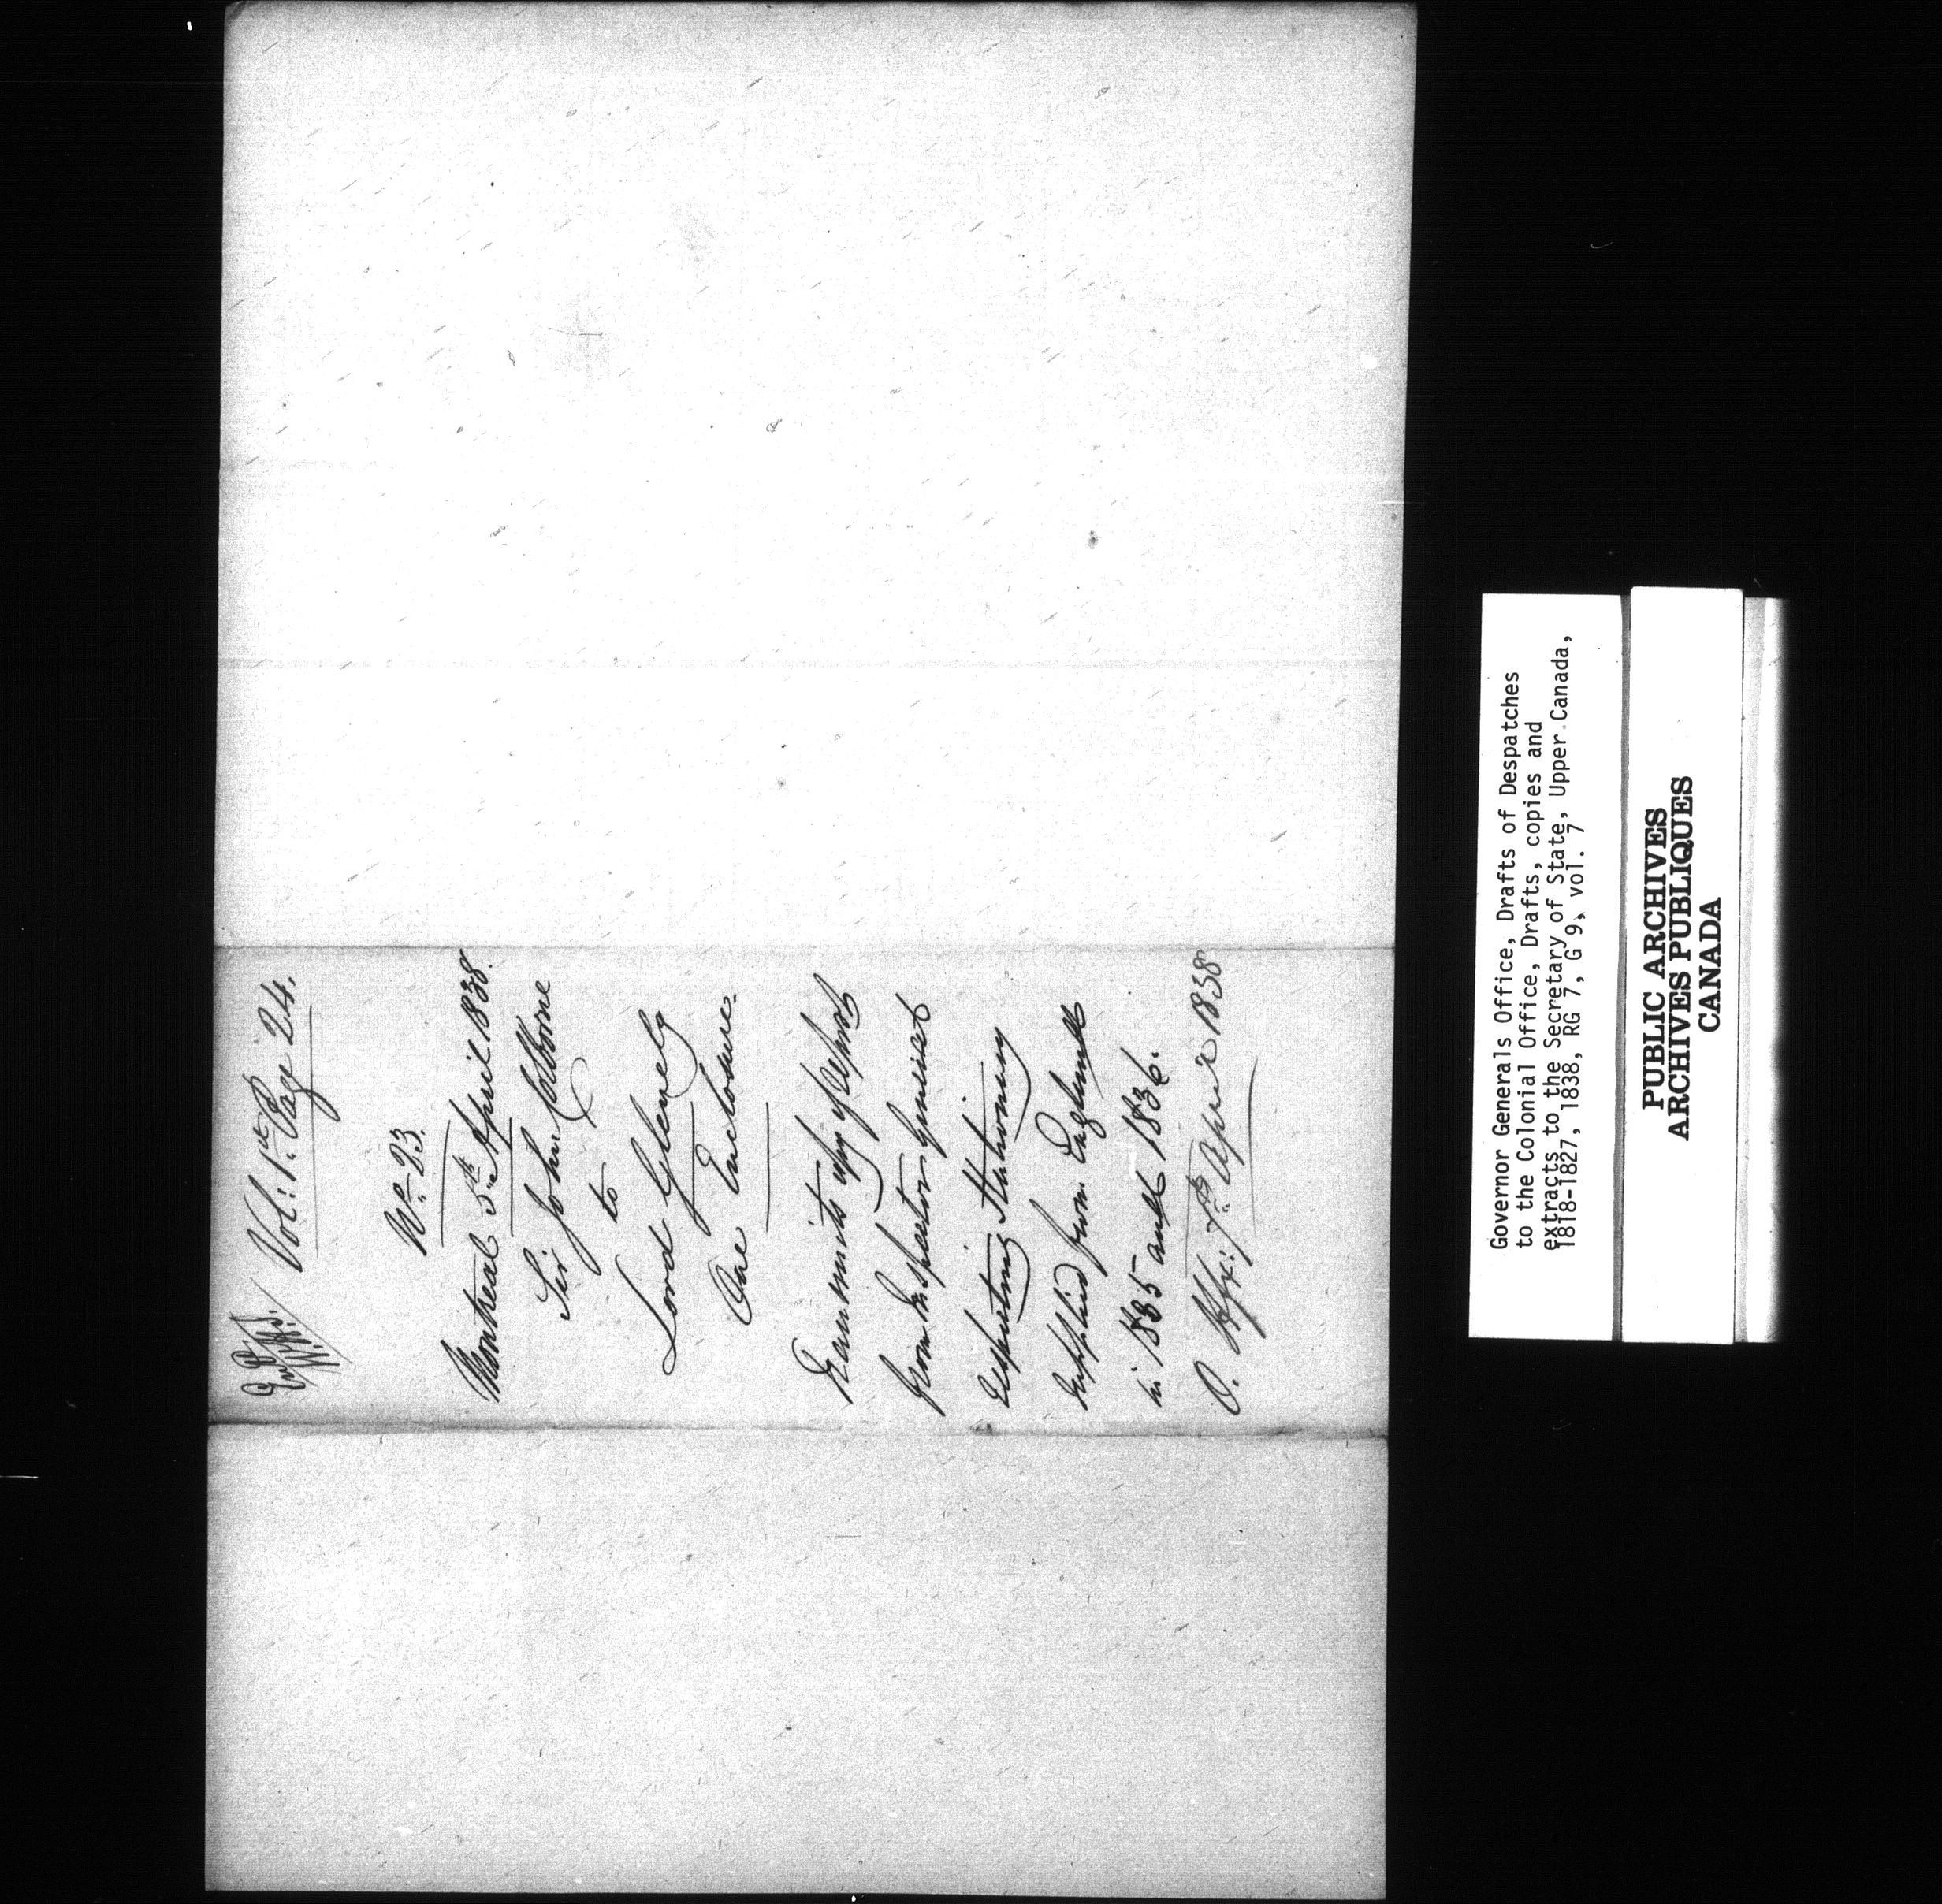 Vol: 1st Page 24.
No. 23.
Montreal 5th April 1838.
Sir John Colborne
to
Lord Glenelg
One Enclosure.
Transmits copy of Report
from Inspector General
respecting Stationery
supplied from England
in 1835 and 1836.
5th April 1838
Governor Generals Office, Drafts of Despatches
to the Colonial Office, Drafts, copies and
extracts to the Secretary of State, Upper Canada,
1818-1827, 1838, RG 7, G 9, vol. 7
PUBLIC ARCHIVES
ARCHIVES PUBLIQUES
CANADA